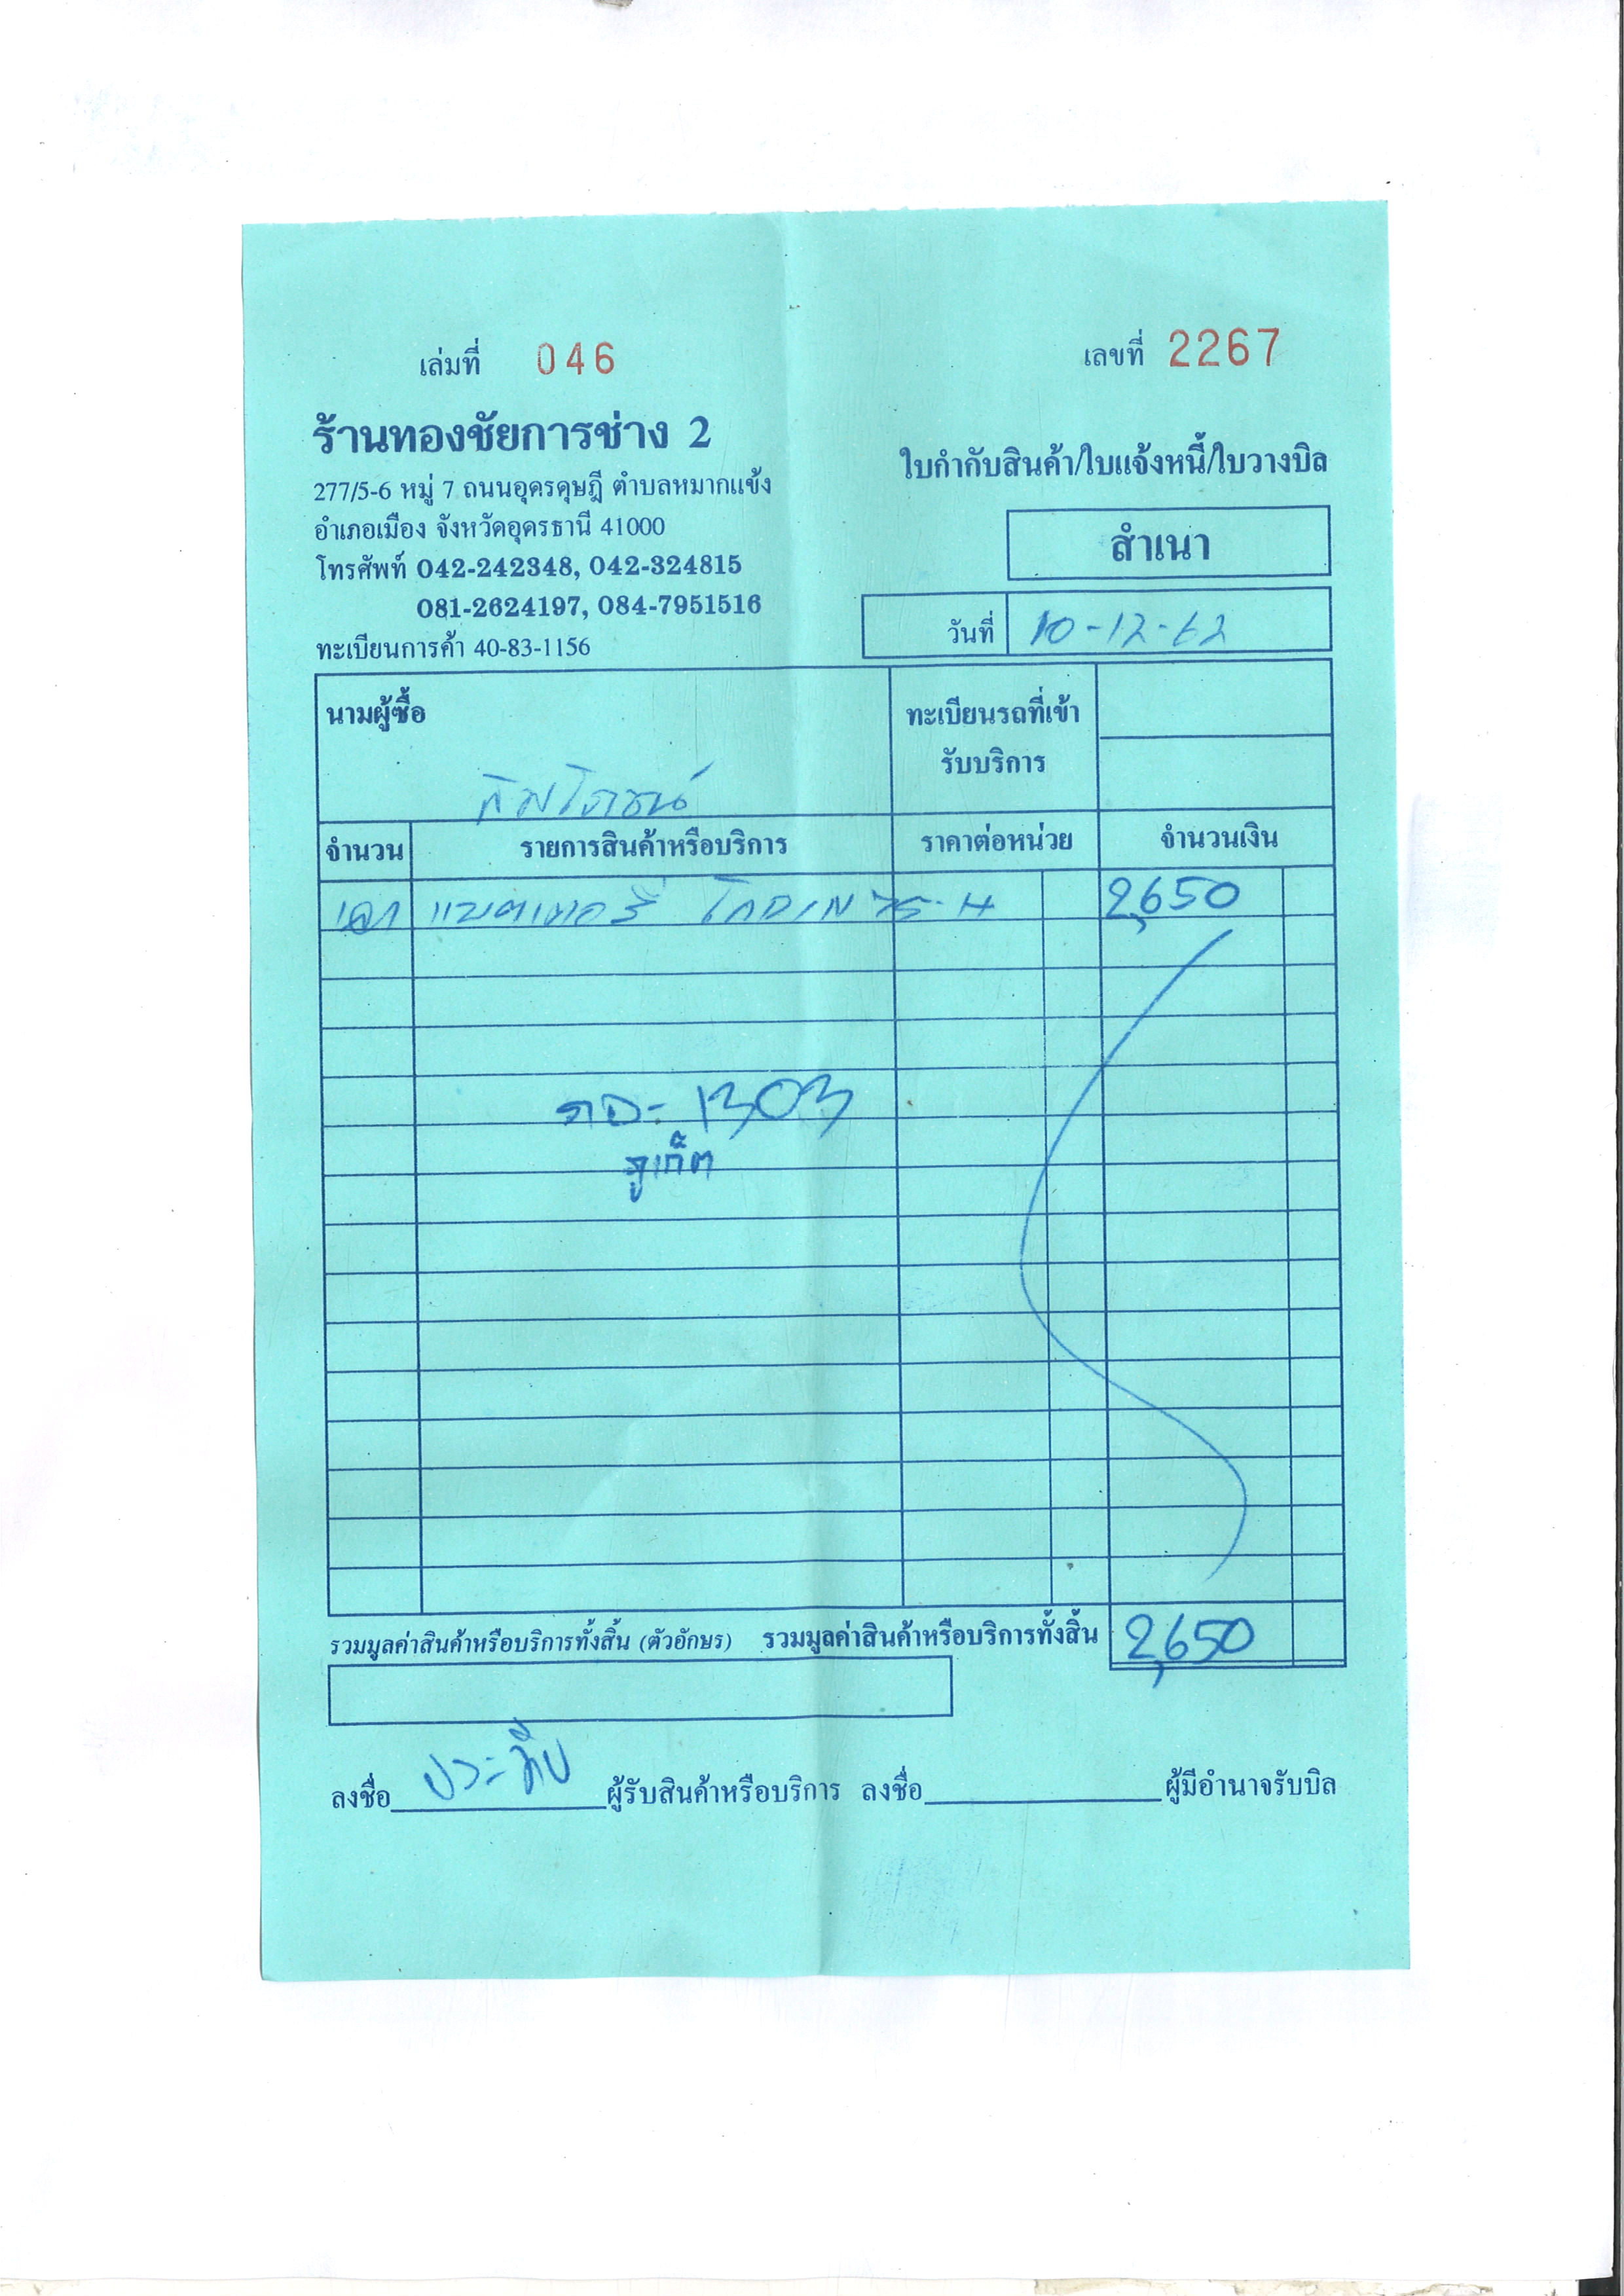 เล่มที่ 046
เลขที่ 2267
ร้านทองชัยการช่าง 2
277/5-6 หมู่ 7 ถนนอุดรดุษฎี ตำบลหมากแข้ง
อำเภอเมือง จังหวัดอุดรธานี 41000
โทรศัพท์ 042-242348, 042-324815
081-2624197, 084-7951516
ทะเบียนการค้า 40-83-1156
ใบกำกับสินค้า/ใบแจ้งหนี้/ใบวางบิล
สำเนา
วันที่ 10-12-62
นามผู้ซื้อ
ทะเบียนรถที่เข้า
รับบริการ
จำนวน รายการสินค้าหรือบริการ ราคาต่อหน่วย จำนวนเงิน
แบตเตอรี่ 2,650
1303
ภูเก็ต
รวมมูลค่าสินค้าหรือบริการทั้งสิ้น (ตัวอักษร) รวมมูลค่าสินค้าหรือบริการทั้งสิ้น 2,650
ลงชื่อ ผู้รับสินค้าหรือบริการ ลงชื่อ ผู้มีอำนาจรับบิล